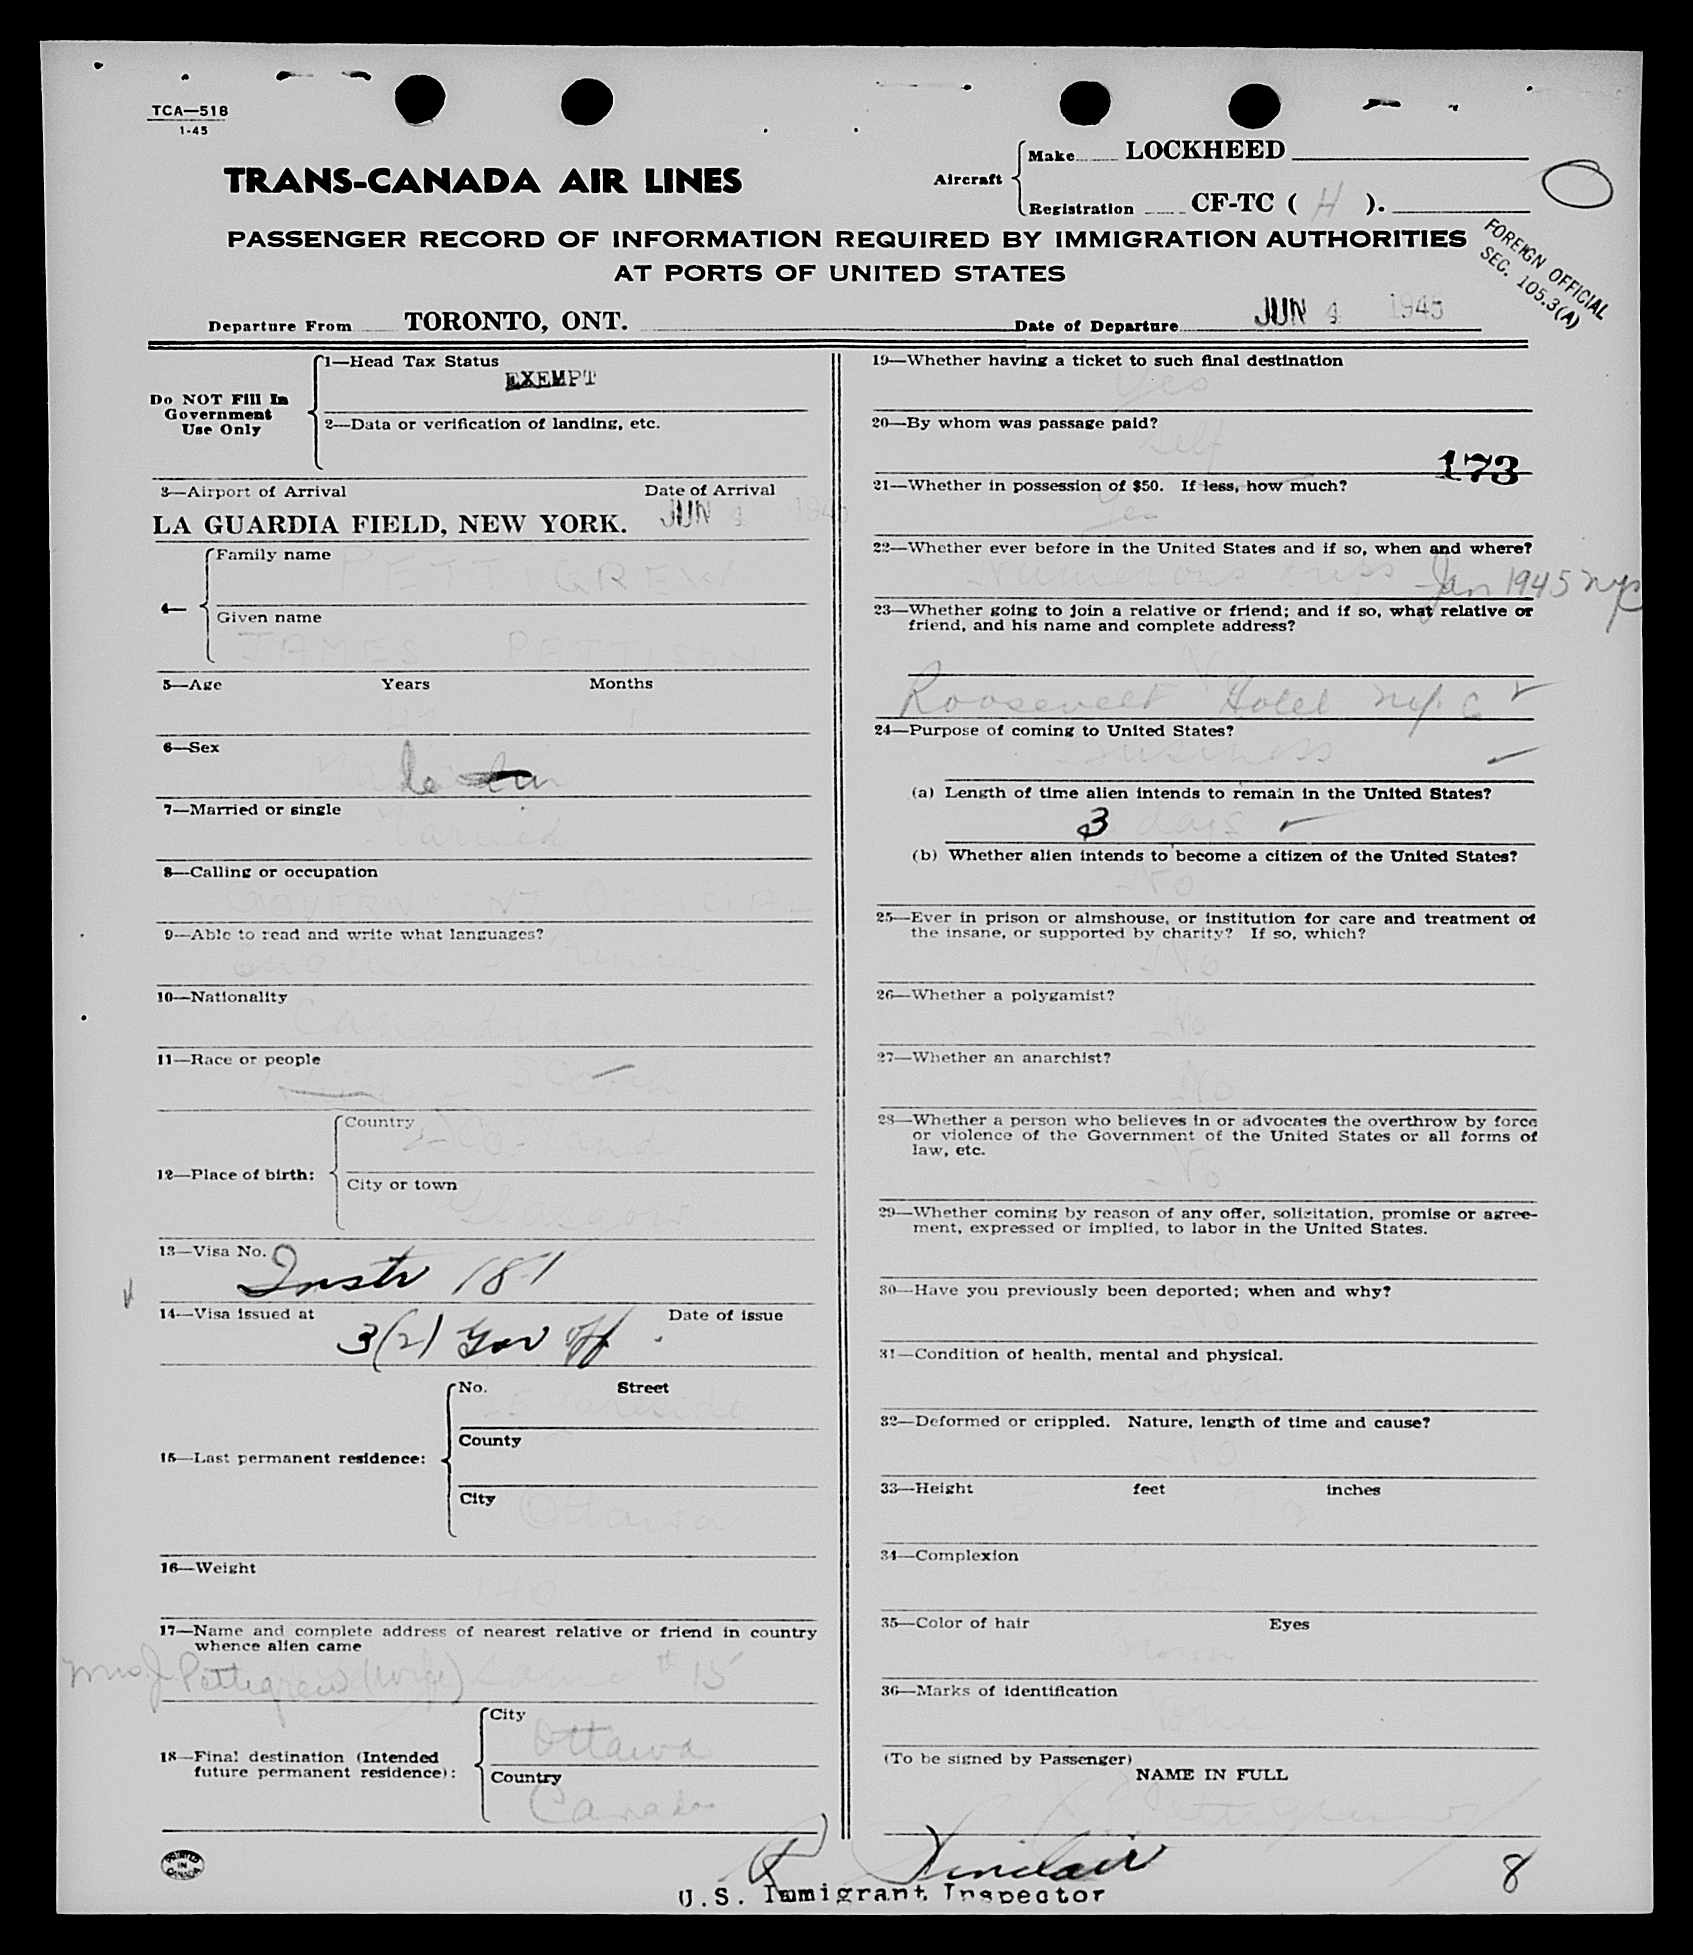 TCA—518
1-45
TRANS-CANADA AIR LINES
Aircraft
Make LOCKHEED
Registration CF-TC ( H ).
PASSENGER RECORD OF INFORMATION REQUIRED BY IMMIGRATION AUTHORITIES
AT PORTS OF UNITED STATES
FOREIGN OFFICIAL
SEC. 105.3(A)
Departure From TORONTO, ONT. Date of Departure JUN 4 1945
Do NOT Fill In
Government
Use Only
1—Head Tax Status
EXEMPT
2—Data or verification of landing, etc.
3—Airport of Arrival Date of Arrival
LA GUARDIA FIELD, NEW YORK. JUN 4 1945
4—
Family name
PETTIGREW
Given name
JAMES PATTISON
5—Age Years Months
6—Sex
Male
7—Married or single
Married
8—Calling or occupation
GOVERNMENT OFFICIAL
9—Able to read and write what languages?
English - French
10—Nationality
Canadian
11—Race or people
Scotch
12—Place of birth:
Country
Scotland
City or town
Glasgow
13—Visa No.
Instr 181
14—Visa issued at Date of issue
3(2) Gov Off
15—Last permanent residence:
No. Street
County
City
Ottawa
16—Weight
140
17—Name and complete address of nearest relative or friend in country
whence alien came
Mrs J Pettigrew (Wife) Same 15
18—Final destination (Intended
future permanent residence):
City
Ottawa
Country
Canada
PRINTED
IN
CANADA
19—Whether having a ticket to such final destination
Yes
20—By whom was passage paid?
Self
173
21—Whether in possession of $50. If less, how much?
Yes
22—Whether ever before in the United States and if so, when and where?
Numerous trips Jan 1945 nyc
23—Whether going to join a relative or friend; and if so, what relative or
friend, and his name and complete address?
Roosevelt Hotel ny. C
24—Purpose of coming to United States?
Business
(a) Length of time alien intends to remain in the United States?
3 days
(b) Whether alien intends to become a citizen of the United States?
No
25—Ever in prison or almshouse, or institution for care and treatment of
the insane, or supported by charity? If so, which?
No
26—Whether a polygamist?
No
27—Whether an anarchist?
No
28—Whether a person who believes in or advocates the overthrow by force
or violence of the Government of the United States or all forms of
law, etc.
No
29—Whether coming by reason of any offer, solicitation, promise or agree-
ment, expressed or implied, to labor in the United States.
30—Have you previously been deported; when and why?
No
31—Condition of health, mental and physical.
32—Deformed or crippled. Nature, length of time and cause?
No
33—Height feet inches
5
34—Complexion
35—Color of hair Eyes
Brown
36—Marks of identification
(To be signed by Passenger)
NAME IN FULL
Sinclair
U.S. Immigrant Inspector
8